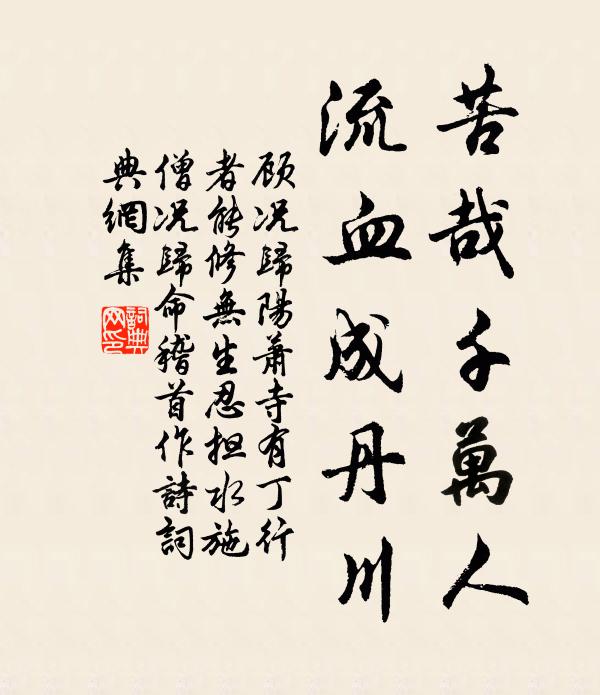 苦哉千萬人
流血成丹川
顾况歸陽蕭寺有丁行
者能修無生忍担水施
僧况歸命稽首作詩詞
典網集
詞典
网印